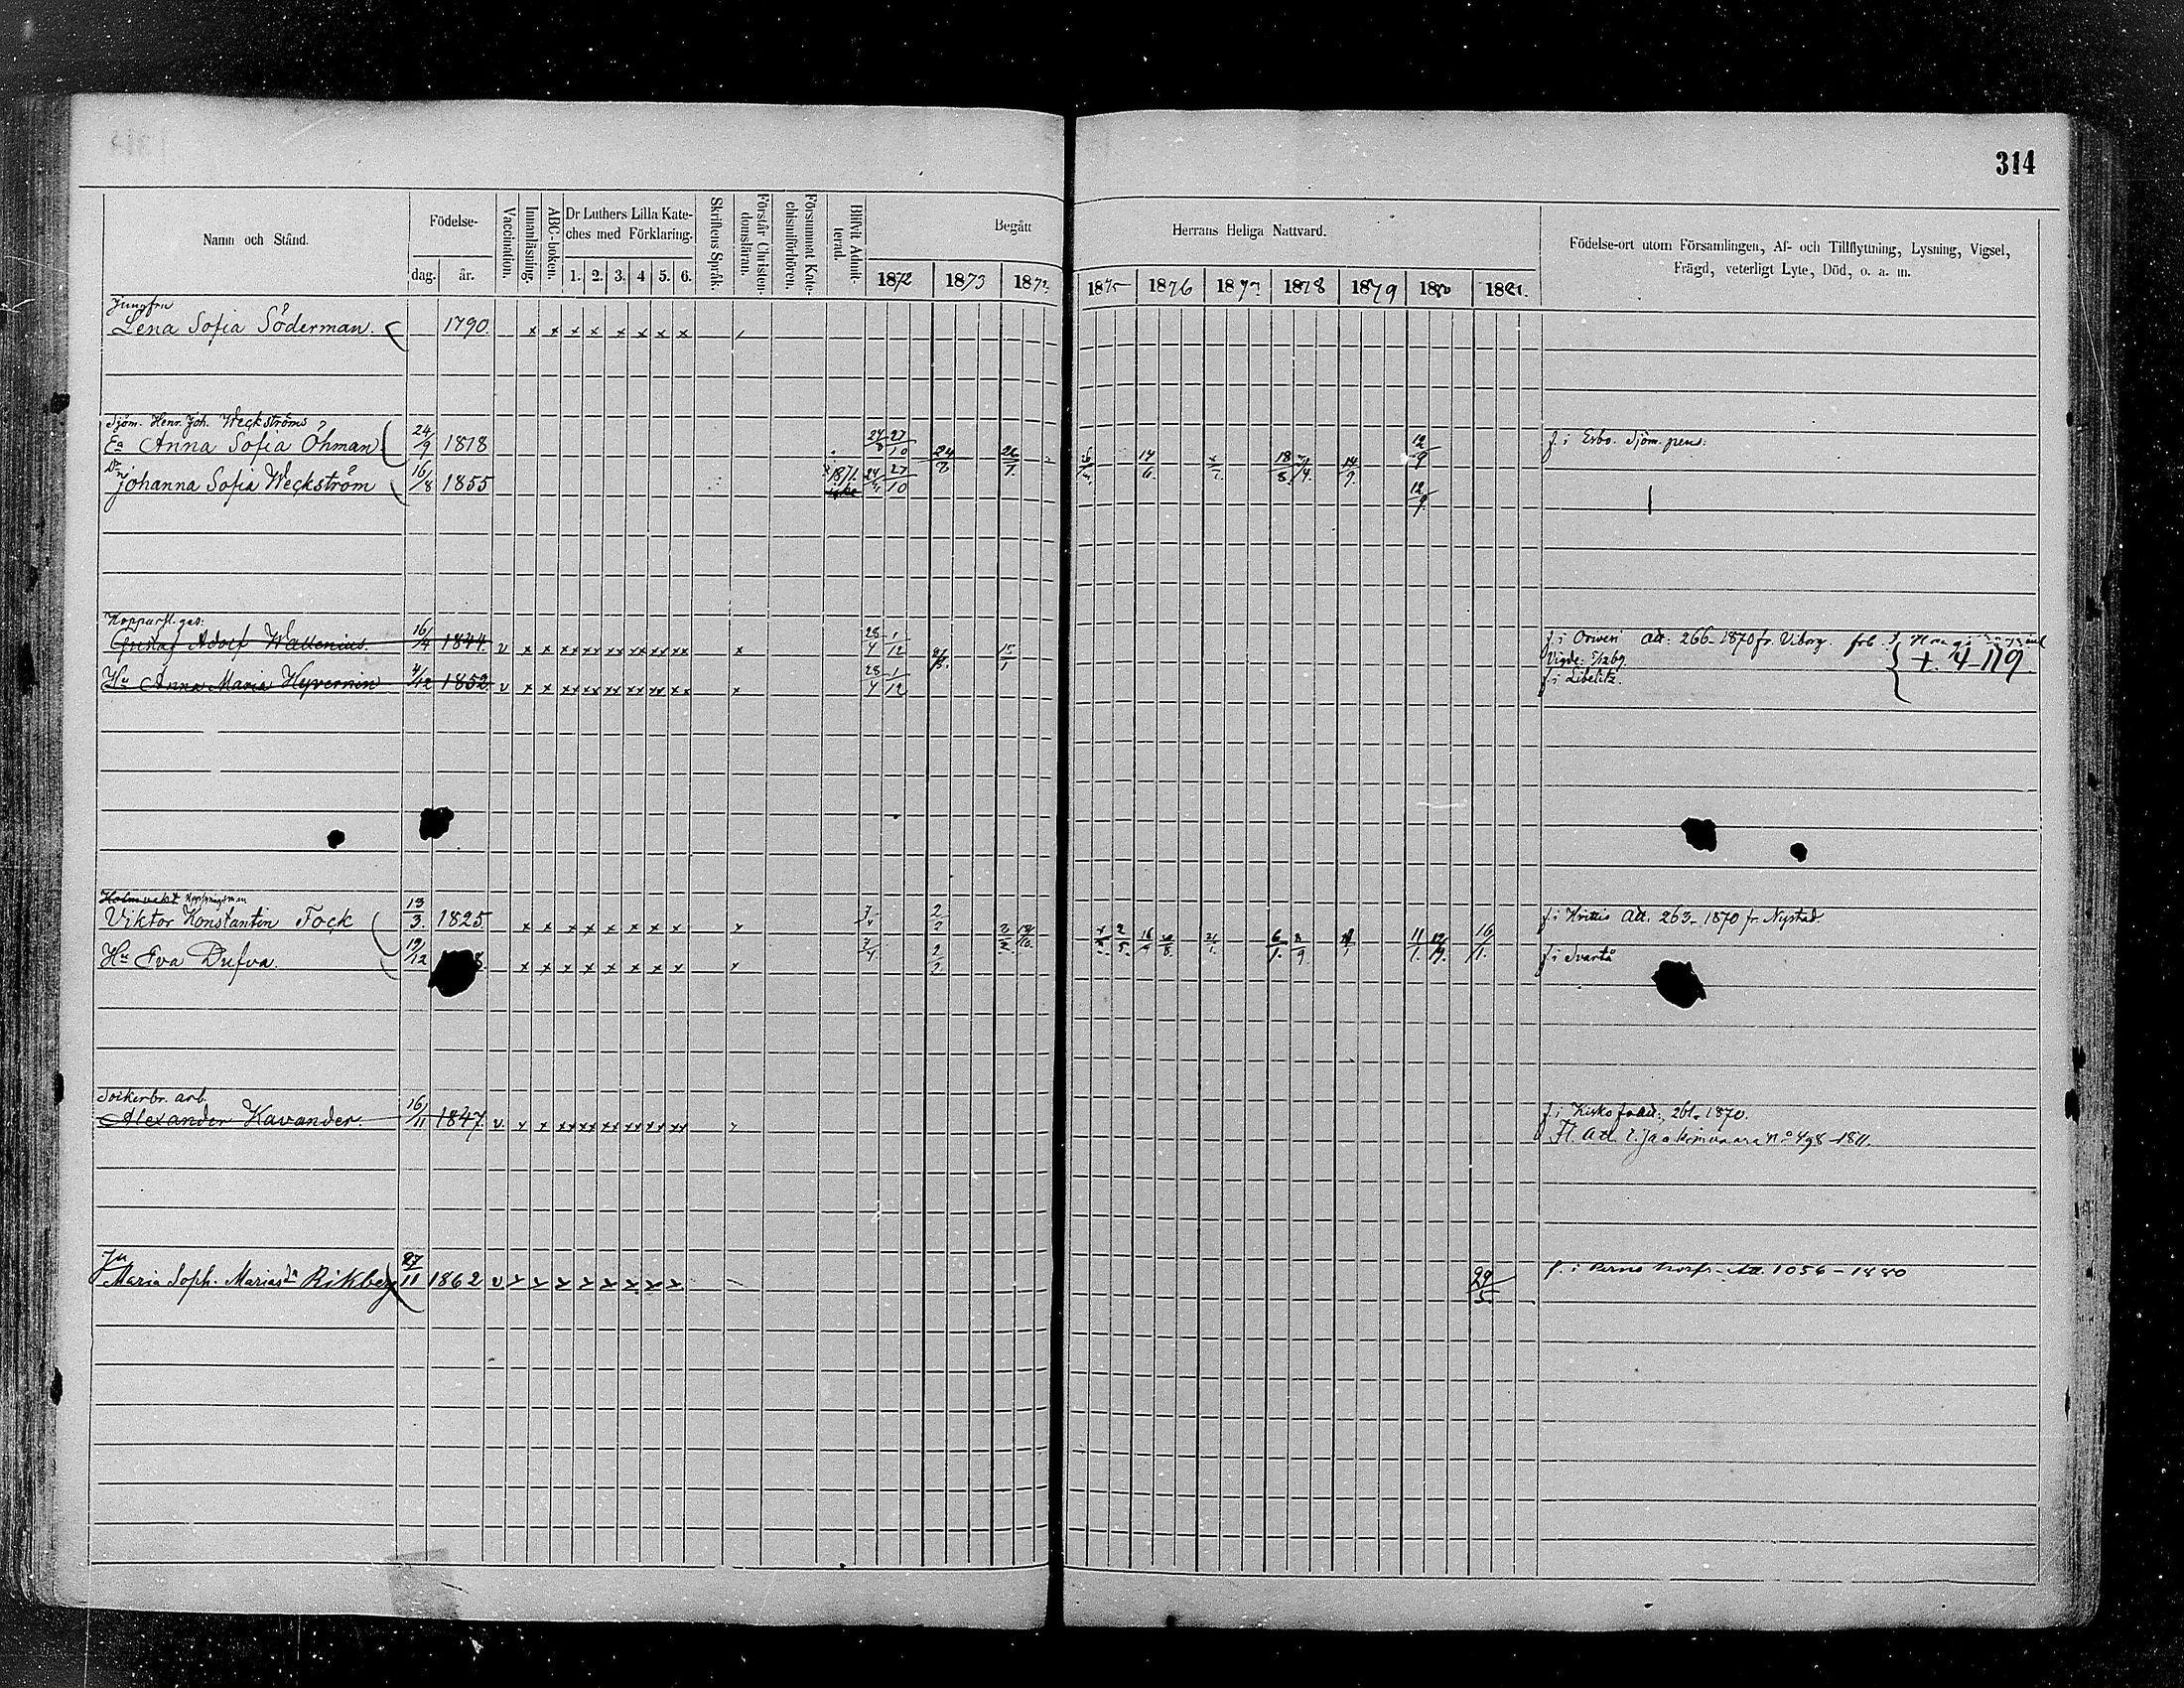 314
Namn och Stånd.
Födelse-
dag. år.
Vaccination.
Innanläsning.
ABC-boken.
Dr Luthers Lilla Kate-
ches med Förklaring.
1. 2. 3. 4 5. 6.
Skriftens Språk.
Förstår Christen-
domsläran.
Försummat Kate-
chismiförhören.
Blifvit Admit-
terad.
Begått Herrans Heliga Nattvard.
1872 1873 1875 1876 1878 1879 1880 1881.
Födelse-ort utom Församlingen, Af- och Tillflyttning, Lysning, Vigsel,
Frägd, veterligt Lyte, Död, o. a. m.
Jungfru
Lena Sofia Söderman. 1790. x x x x x x x x
Sjöm. Henr. Joh. Weckströms
Ea Anna Sofia Öhman 24/9 1818 27/10 24/8 26/7 14/6 18/8 14/9 12/9 f. i Esbo. Sjöm. pens.
Dr Johanna Sofia Weckström 16/8 1855 1871. 27/10 12/9
Kopparsl. ges:
Gustaf Adolf Wallenius. 16/4 1844. v x x xx xx xx xx xx xx x 28/4 1/12 15/1 f. i Oriwesi Att: 266-1870 fr. Viborg.
Vigde: 5/12 69. + 4 119
Hu Anna Maria Hyvernin 4/12 1852. v x x xx xx xx xx xx xx x 28/4 1/12 f. i Libelitz.
Viktor Konstantin Fock 13/3. 1825. x x x x x x x x x f. i Hvittis Att. 263-1870 fr. Nystad
Hu Eva Dufva. 19/12 x x x x x x x x x 2/5. 6/1. 8/9 11/1. 16/1. f. i Svartå
Sockerbr. arb.
Alexander Kavander. 16/11 1847. v. x x xx xx xx xx xx xx f. i Kisko Att: 261-1870.
Fl. Att. t. Jaakimvaara No 498-1811.
Ju
Maria Soph. Mariasdr Rikberg 27/11 1862 v x x x x x x x x 29/5. f. i Perno Att. 1056-1880